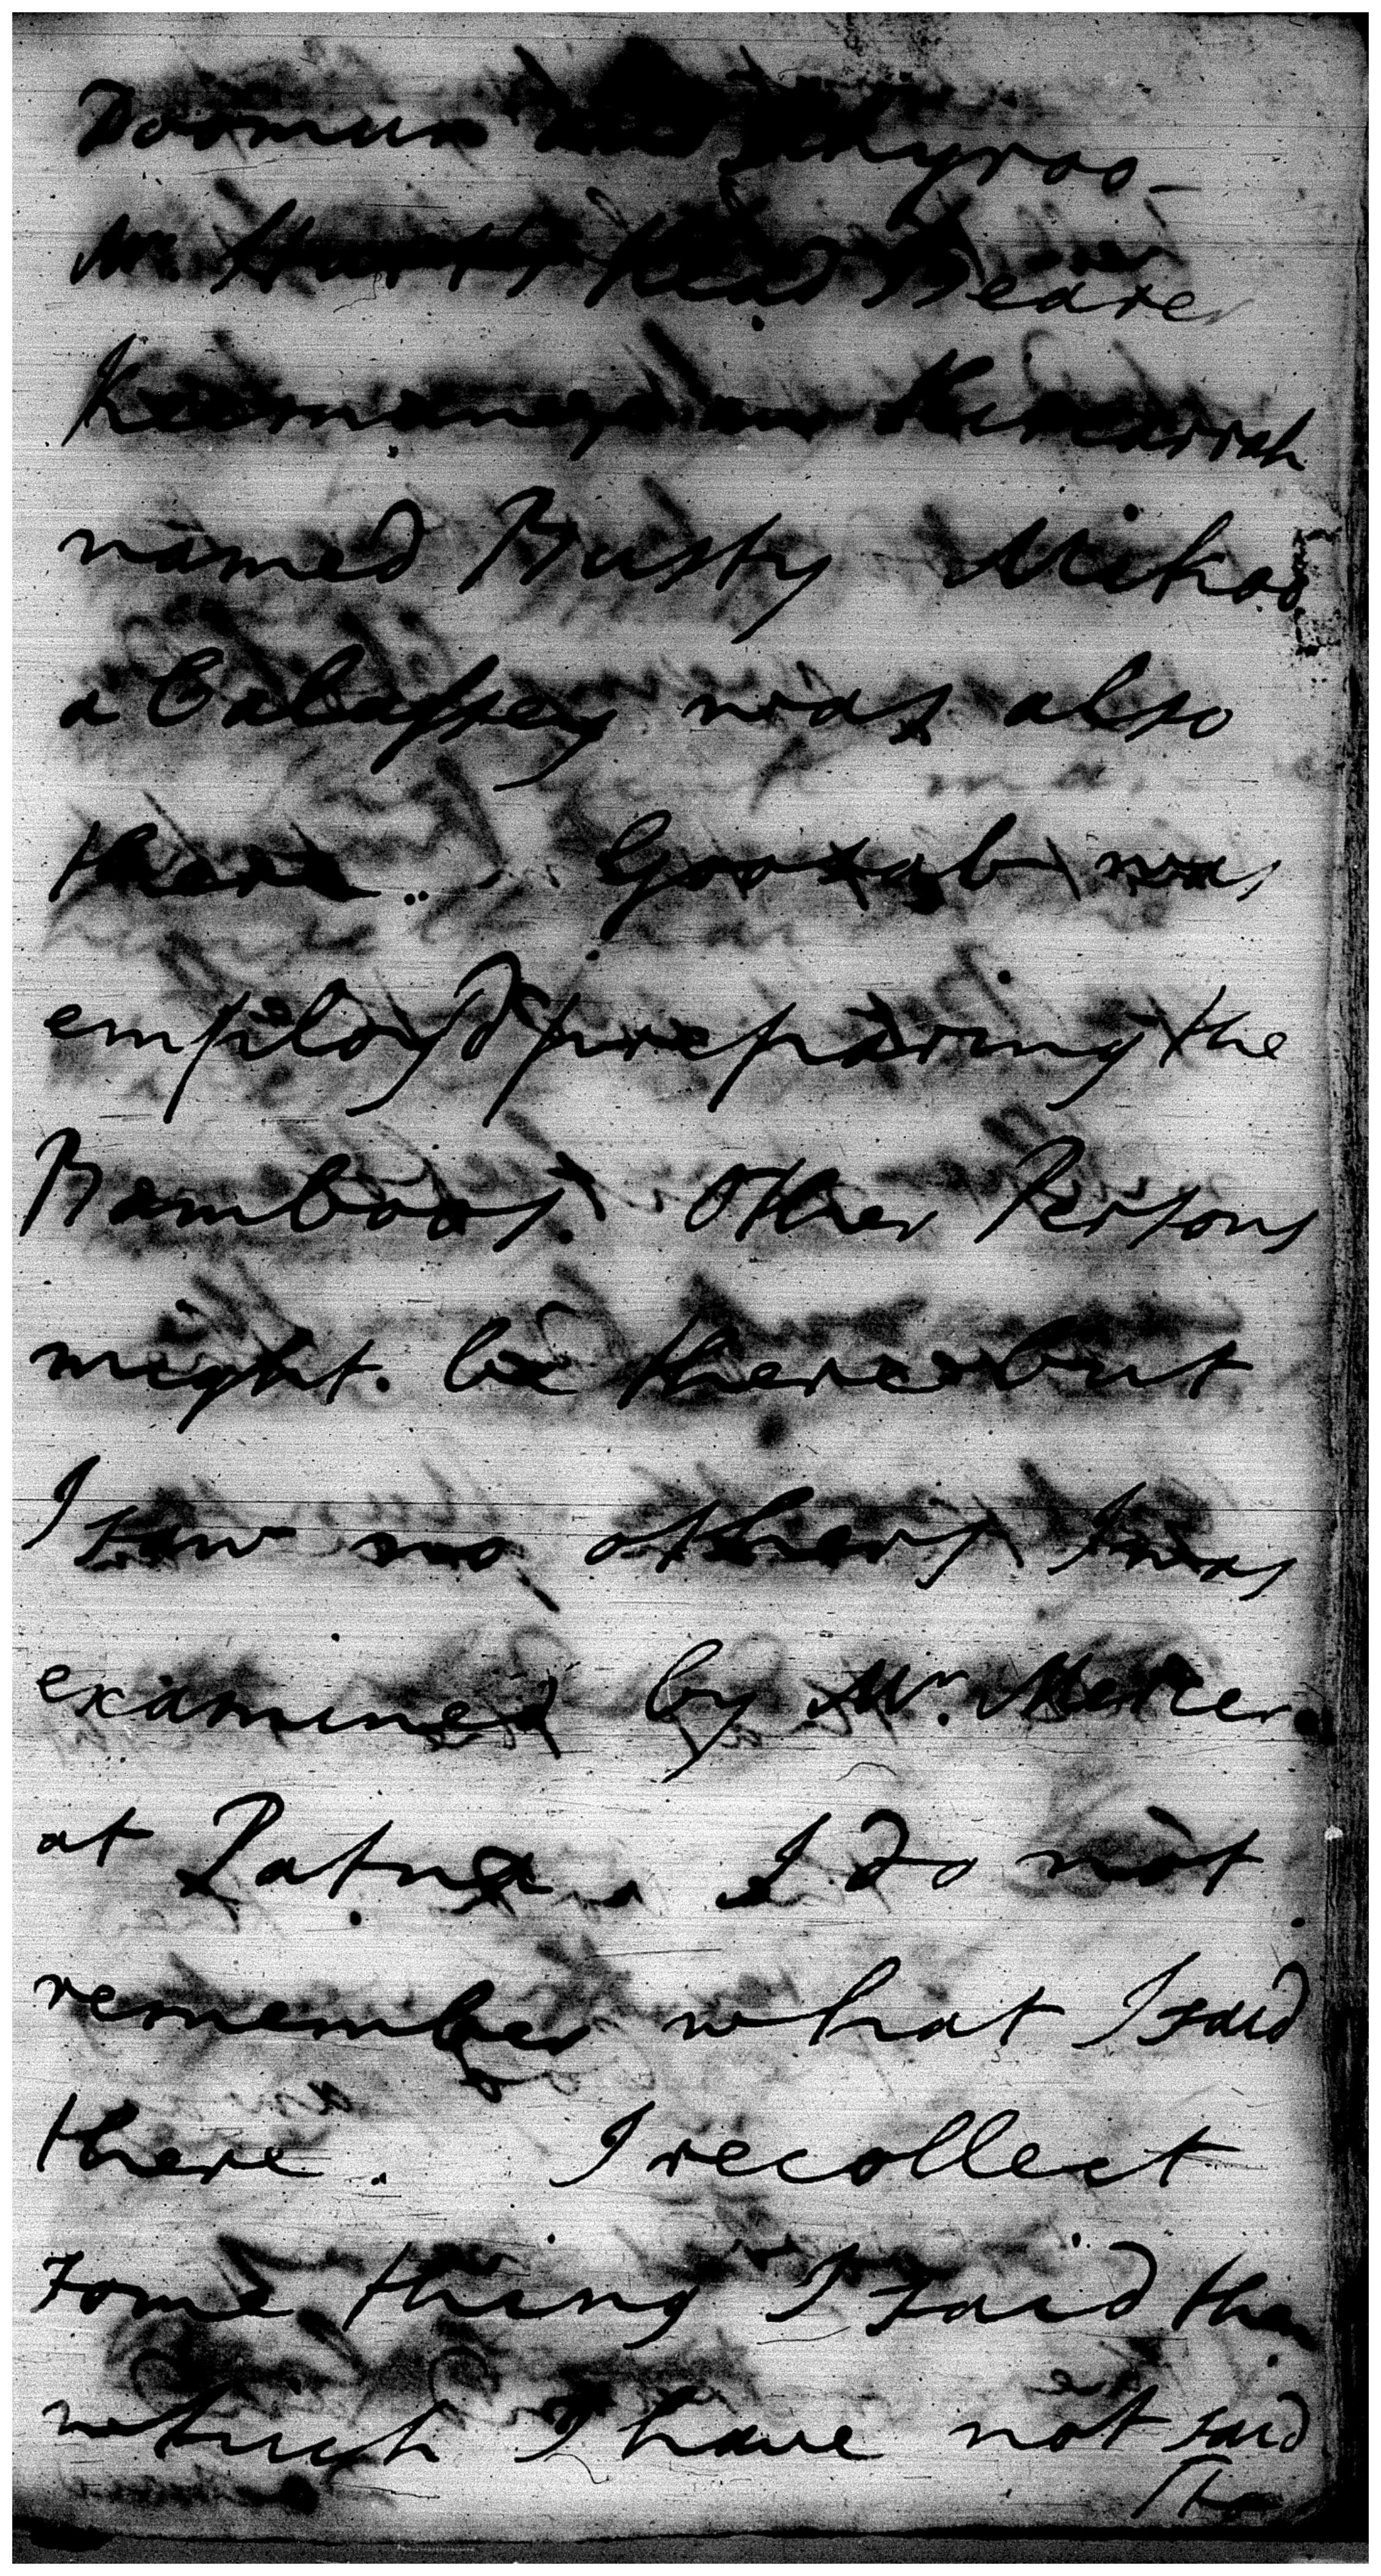 Doomun and
Mr. Head Bearer
named Busty Mikoo
a Calassey was also
there. Goolab was
employ'd preparing the
Bamboos. Other Persons
might be there but
I saw no others. I was
examined by Mr. Mercer
at Patna. I do not
remember what I said
there. I recollect
some thing I said then
which I have not said
The